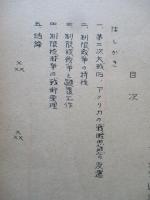 目次
はしがき
一、第二次大戦后、アメリカの戦略思想の変遷
二、制限戦争の特徴
三、制限核戦争と謀略工作
四、制限核戦争の戦略原理
五、結論